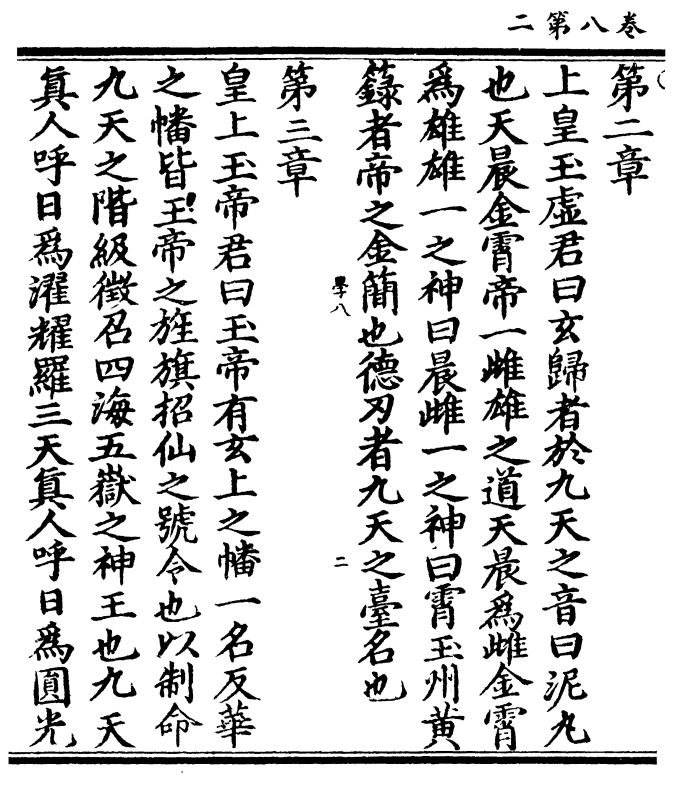 卷八第二
第二章
上皇玉虛君曰玄歸者於九天之音曰泥丸
也天晨金霄帝一雌雄之道天晨爲雌金霄
爲雄雄一之神曰晨雌一之神曰霄玉州黃
籙者帝之金簡也德刃者九天之臺名也
學八
二
第三章
皇上玉帝君曰玉帝有玄上之幡一名反華
之幡皆玉帝之旌旗招仙之號令也以制命
九天之階級徵召四海五嶽之神王也九天
眞人呼日爲濯耀羅三天眞人呼日爲圓光